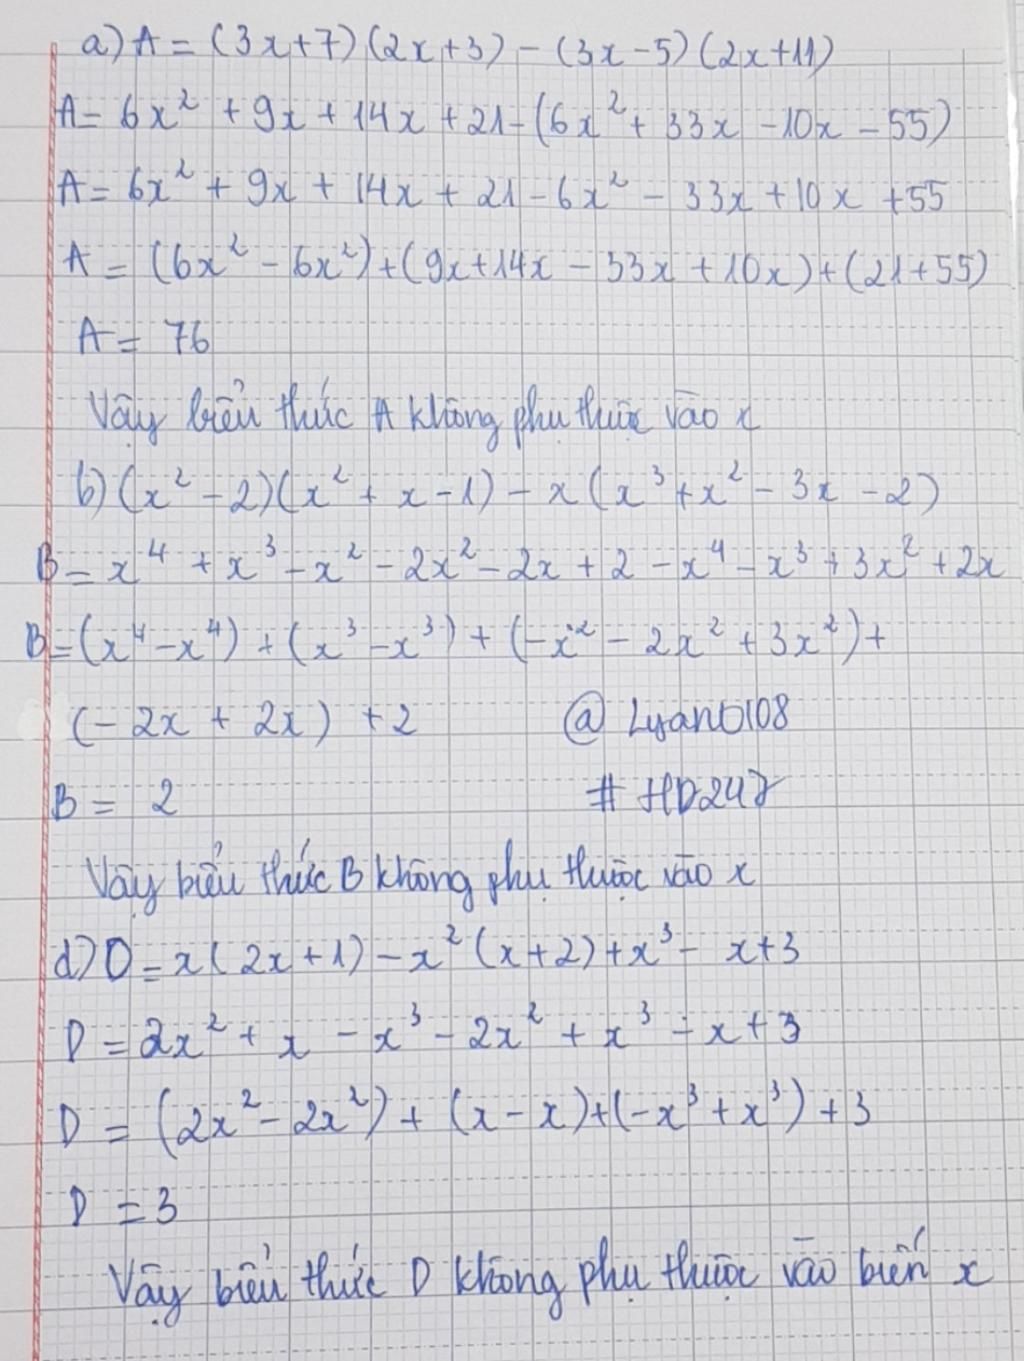 a) A = (3x+7)(2x+3) - (3x-5)(2x+11)
A = 6x² + 9x + 14x + 21 - (6x² + 33x - 10x - 55)
A = 6x² + 9x + 14x + 21 - 6x² - 33x + 10x + 55
A = (6x² - 6x²) + (9x + 14x - 33x + 10x) + (21 + 55)
A = 76
Vậy biểu thức A không phụ thuộc vào x
b) (x² - 2)(x² + x - 1) - x (x³ + x² - 3x - 2)
B = x⁴ + x³ - x² - 2x² - 2x + 2 - x⁴ - x³ + 3x² + 2x
B = (x⁴ - x⁴) + (x³ - x³) + (-x² - 2x² + 3x²) +
(-2x + 2x) + 2 @ Lyan0108
B = 2 # HD247
Vậy biểu thức B không phụ thuộc vào x
d) D = x(2x+1) - x² (x+2) + x³ - x + 3
D = 2x² + x - x³ - 2x² + x³ - x + 3
D = (2x² - 2x²) + (x - x) + (-x³ + x³) + 3
D = 3
Vậy biểu thức D không phụ thuộc vào biến x